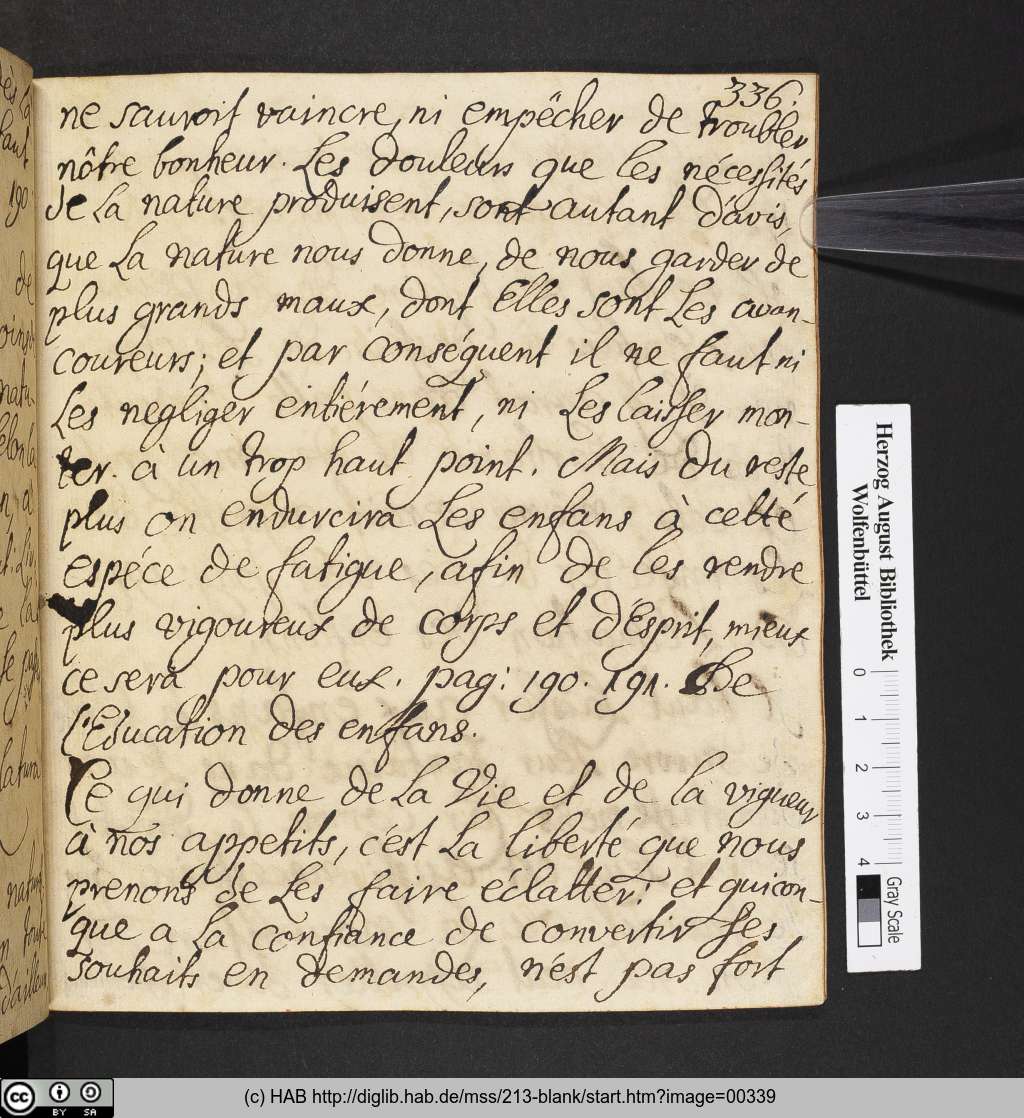 336.
ne sauroit vaincre, ni empêcher de troubler
nôtre bonheur. Les douleurs que les nécessités
de la nature produisent, sont autant d'avis,
que la nature nous donne, de nous garder de
plus grands maux, dont Elles sont Les avan-
coureurs; et par conséquent il ne faut ni
Les negliger entiérement, ni Les laisser mon-
ter à un trop haut point. Mais du reste
plus on endurcira Les enfans à cette
espéce de fatigue, afin de les rendre
plus vigoureux de corps et d'Esprit, mieux
ce sera pour eux. pag: 190. 191. De
l'Education des enfans.
Ce qui donne de La Vie et de la vigueur
à nos appetits, c'est La liberté que nous
prenons de Les faire éclatter: et quicon-
que a La confiance de convertir ses
souhaits en demandes, n'est pas fort
190
de
natu-
la
Herzog August Bibliothek
Wolfenbüttel
0 1 2 3 4
Gray Scale
(c) HAB http://diglib.hab.de/mss/213-blank/start.htm?image=00339
cc BY SA